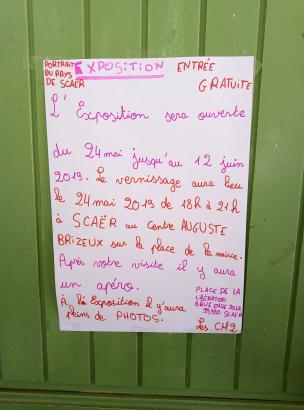 PORTRAIT EXPOSITION ENTRÉE
DU PAYS
DE SCAER GRATUITE
L'Exposition sera ouverte
du 24 mai jusqu'au 12 juin
2019. Le vernissage aura lieu
le 24 mai 2019 de 18h à 21h
à SCAËR au Centre AUGUSTE
BRIZEUX sur la place de la mairie.
Après votre visite il y aura
un apéro.
À la Exposition il y aura
pleins de PHOTOS.
PLACE DE LA
LIBÉRATION
29390 SCAER
Les CM2